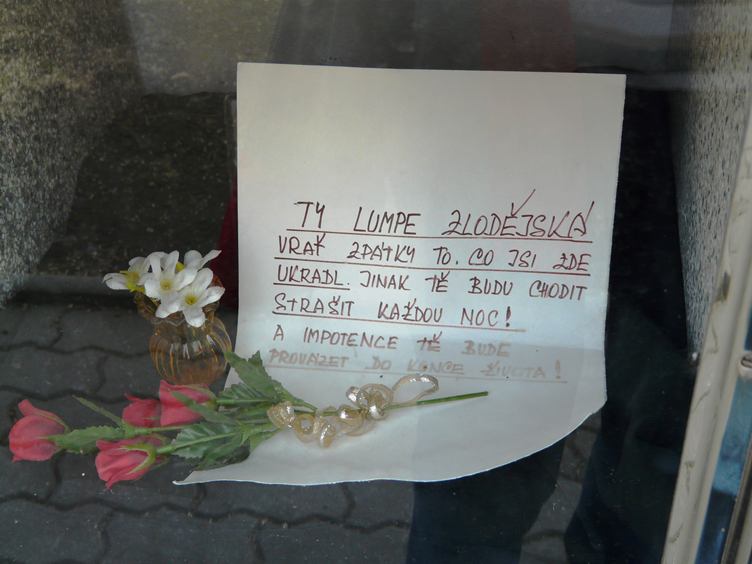 TY LUMPE ZLODĚJSKÁ
VRAŤ ZPÁTKY TO. CO JSI ZDE
UKRADL. JINAK TĚ BUDU CHODIT
STRAŠIT KAŽDOU NOC!
A IMPOTENCE TĚ BUDE
PROVÁZET DO KONCE ŽIVOTA!